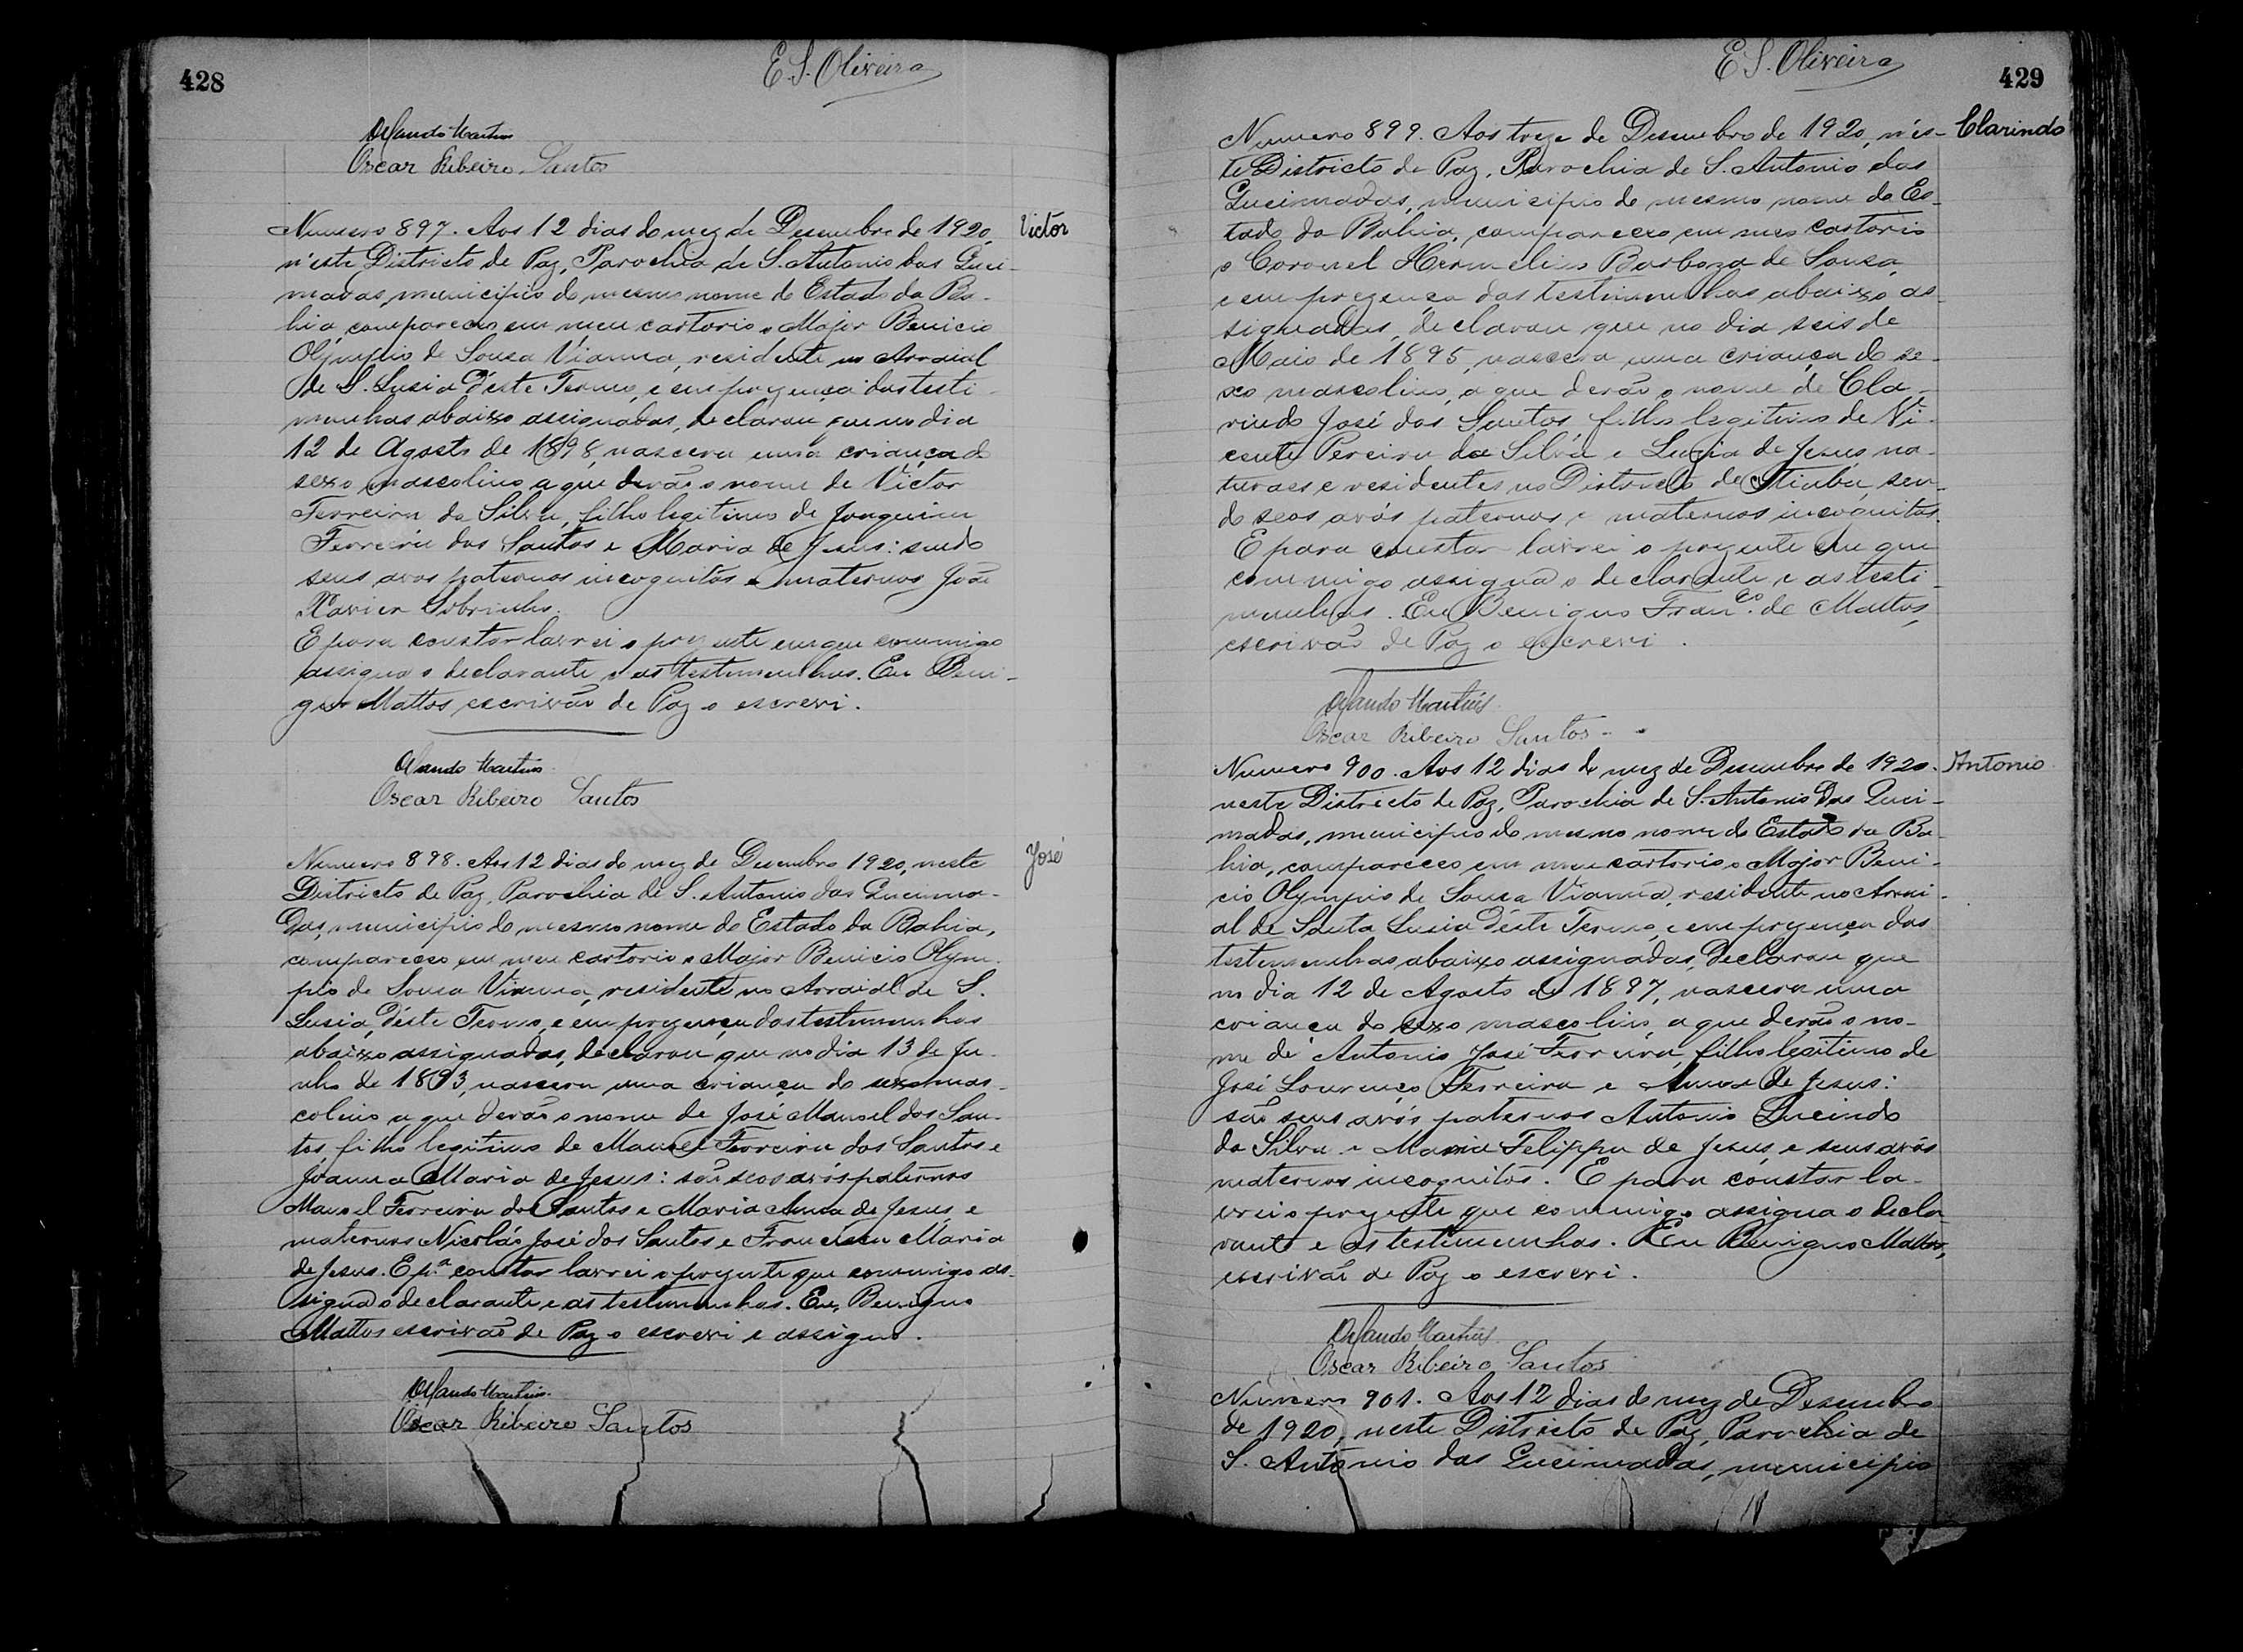 428
E. S. Oliveira
Orlando Martins
Oscar Ribeiro Santos
Numero 897. Aos 12 dias do mez de Desembro de 1920,
n'este Districto de Paz, Parochia de S. Antonio das Quei-
madas, municipio do mesmo nome do Estado da Ba-
hia, compareceo em meu cartorio o Major Benicio
Olympio de Sousa Vianna, residente no Arraial
de S. Lusia d'este Termo, e em prezença das teste-
munhas abaixo assignadas, declarou que no dia
12 de Agosto de 1898, nascera uma criança do
sexo mascolino, a que derão o nome de Victor
Ferreira da Silva, filho legitimo de Joaquim
Ferreira dos Santos e Maria de Jesus: sendo
seus avos paternos incognitos e maternos João
Xavier Sobrinho.
E para constar lavrei o prezente em que commigo
assigna o declarante e as testemunhas. Eu Beni-
gno Mattos escrivão de Paz o escrevi.
Victor
Orlando Martins
Oscar Ribeiro Santos
Numero 898. Aos 12 dias do mez de Desembro 1920, neste
Districto de Paz, Parochia de S. Antonio das Queima-
das, municipio do mesmo nome do Estado da Bahia,
compareceo em meu cartorio o Major Benicio Olym-
pio de Sousa Vianna, residente no Arraial de S.
Lusia, d'este Termo, e em prezença das testemunhas
abaixo assignadas, declarou que no dia 13 de Ju-
nho de 1893, nascera uma criança do sexo mas-
colino a que derão o nome de José Manoel dos San-
tos, filho legitimo de Manoel Ferreira dos Santos e
Joanna Maria de Jesus: são seos avós paternos
Manoel Ferreira dos Santos e Maria Anna de Jesus, e
maternos Nicolás José dos Santos e Francisca Maria
de Jesus. E p.ª constar lavrei o prezente que commigo as-
signa o declarante e as testemunhas. Eu, Benigno
Mattos escrivão de Paz o escrevi e assigno.
José
Orlando Martins
Oscar Ribeiro Santos
E. S. Oliveira
429
Numero 899. Aos treze de Desembro de 1920, n'es-
te Districto de Paz, Parochia de S. Antonio das
Queimadas, municipio do mesmo nome do Es-
tado da Bahia, compareceo em meo cartorio
o Coronel Hermelino Barboza de Sousa,
e em prezença das testemunhas abaixo as-
signadas, declarou que no dia seis de
Maio de 1895, nascera uma criança do se-
xo mascolino, a que derão o nome de Cla-
rindo José dos Santos, filho legitimo de Vi-
cente Pereira da Silva e Luzia de Jesus na-
turaes e residentes no Districto de Itiuba, sen-
do seos avós paternos e maternos incognitos.
E para constar lavrei o prezente em que
commigo assigna o declarante e as teste-
munhas. Eu Benigno Fran.co de Mattos,
escrivão de Paz o escrevi.
Clarindo
Orlando Martins
Oscar Ribeiro Santos
Numero 900. Aos 12 dias do mez de Desembro de 1920.
neste Districto de Paz, Parochia de S. Antonio das Quei-
madas, municipio do mesmo nome do Estado da Ba-
hia, compareceo em meu cartorio o Major Beni-
cio Olympio de Sousa Vianna, residente no Arrai-
al de Santa Lusia d'este Termo, e em prezença das
testemunhas abaixo assignadas, declarou que
no dia 12 de Agosto de 1897, nascera uma
criança do sexo mascolino, a que derão o no-
me de Antonio José Ferreira, filho legitimo de
José Lourenço Ferreira e Anna de Jesus:
são seus avós paternos Antonio Lucindo
da Silva e Maria Felippa de Jesus, e seus avós
maternos incognitos. E para constar la-
vrei o prezente que commigo assigna o decla-
rante e as testemunhas. Eu Benigno Mattos,
escrivão de Paz o escrevi.
Antonio
Orlando Martins
Oscar Ribeiro Santos
Numero 901. Aos 12 dias do mez de Desembro
de 1920, neste Districto de Paz, Parochia de
S. Antonio das Queimadas, municipio